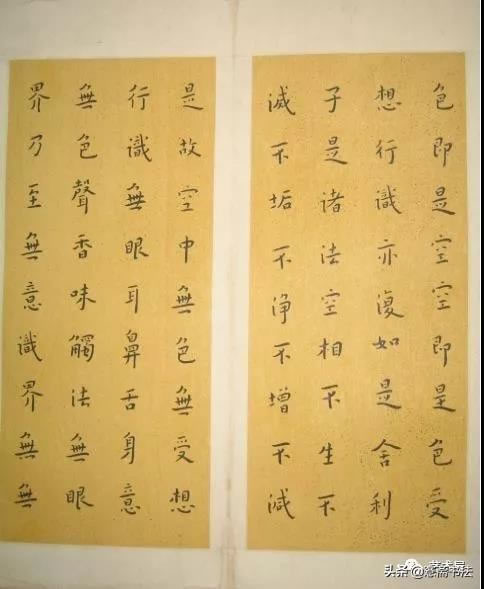 色即是空空即是色受
想行識亦復如是舍利
子是諸法空相不生不
滅不垢不淨不增不減
是故空中無色無受想
行識無眼耳鼻舌身意
無色聲香味觸法無眼
界乃至無意識界無無